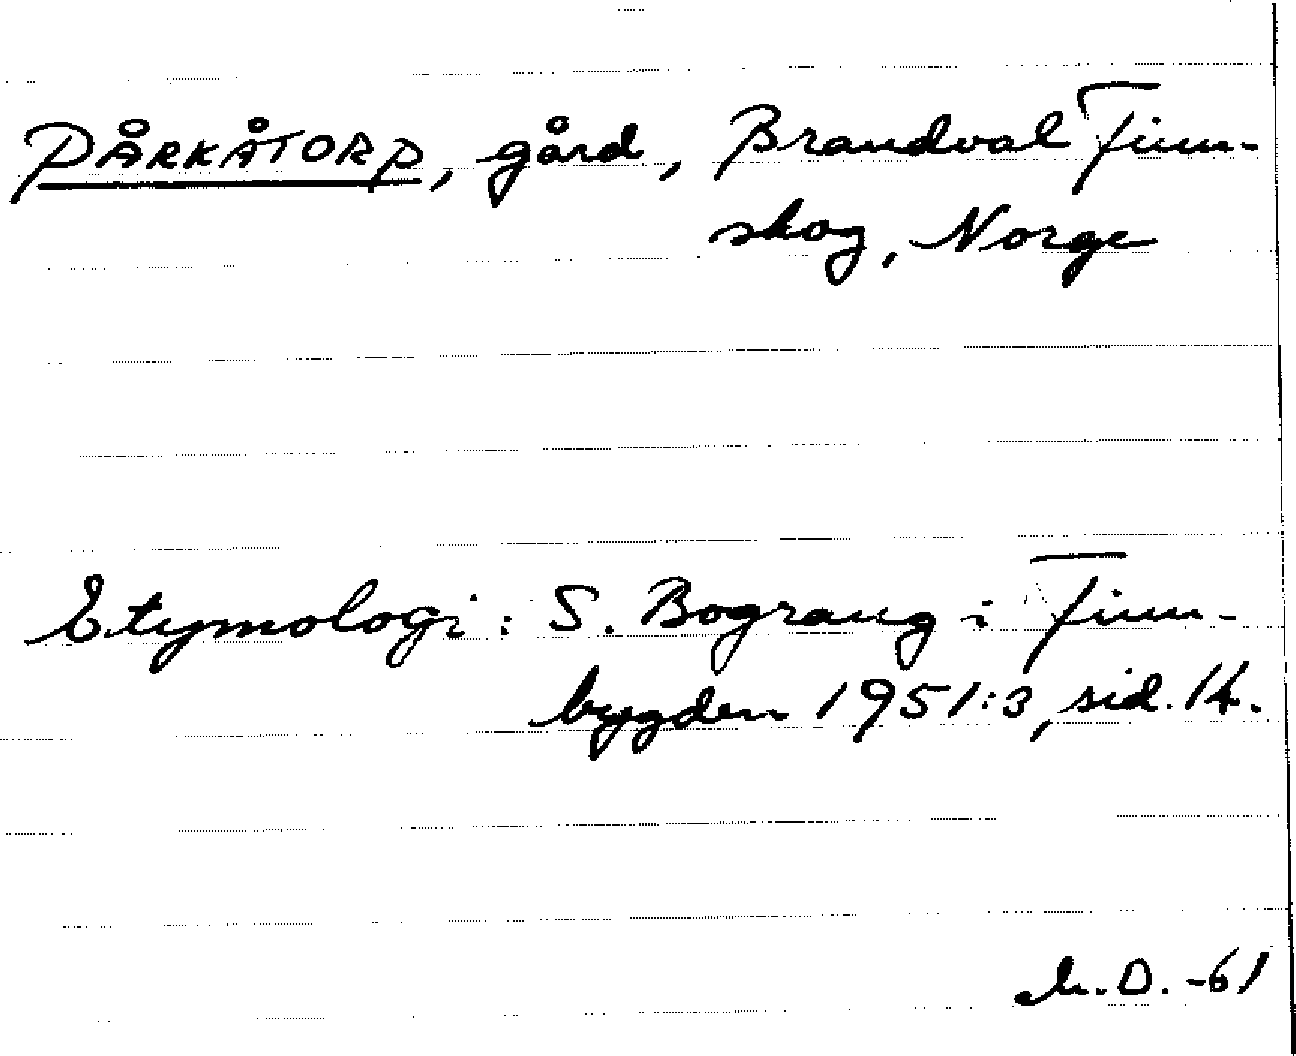 PÅRKÅTORP, gård, Brandval Finn-
skog, Norge
Etymologi: S. Bograng i Finn-
bygden 1951:3, sid. 14.
M.D. -61